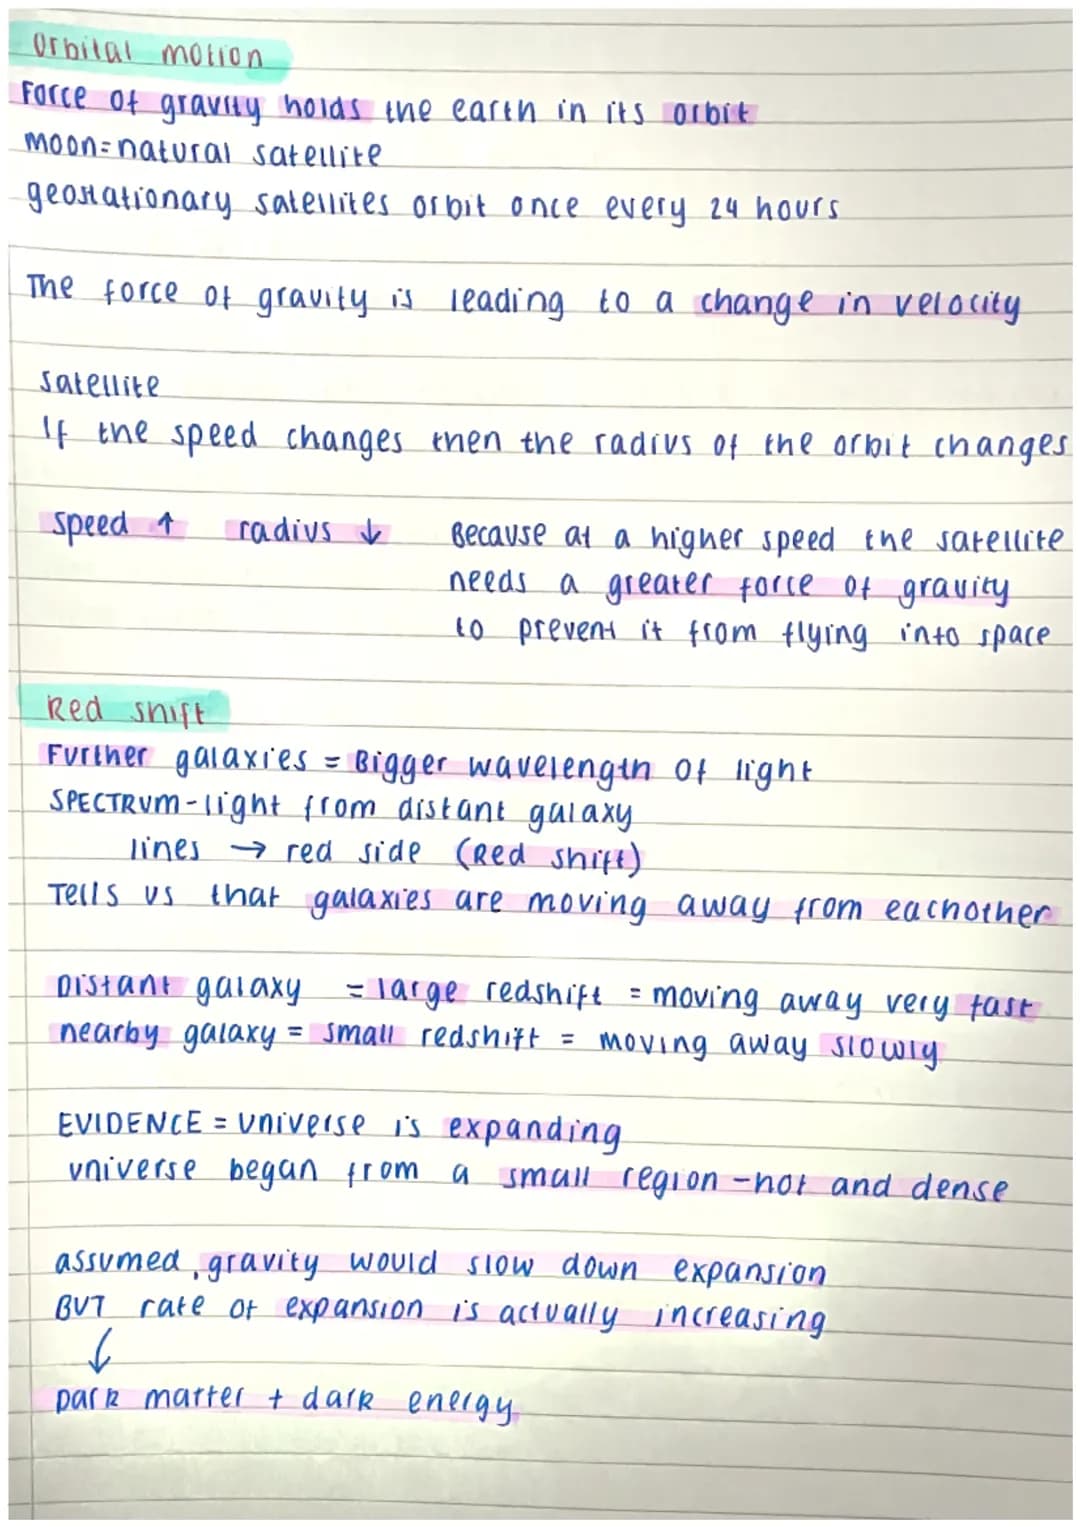 Orbital motion
Force of gravity holds the earth in its orbit
moon=natural satellite
geostationary satellites orbit once every 24 hours
The force of gravity is leading to a change in velocity
satellite
If the speed changes then the radius of the orbit changes
speed ↑ radius ↓ Because at a higher speed the satellite
needs a greater force of gravity
to prevent it from flying into space
Red shift
Further galaxies = Bigger wavelength of light
SPECTRUM-light from distant galaxy
lines → red side (Red shift)
Tells us that galaxies are moving away from eachother
Distant galaxy = large redshift = moving away very fast
nearby galaxy = small redshift = moving away slowly
EVIDENCE = universe is expanding
universe began from a small region -hot and dense
assumed, gravity would slow down expansion
BUT rate of expansion is actually increasing
↓
Dark matter + dark energy.